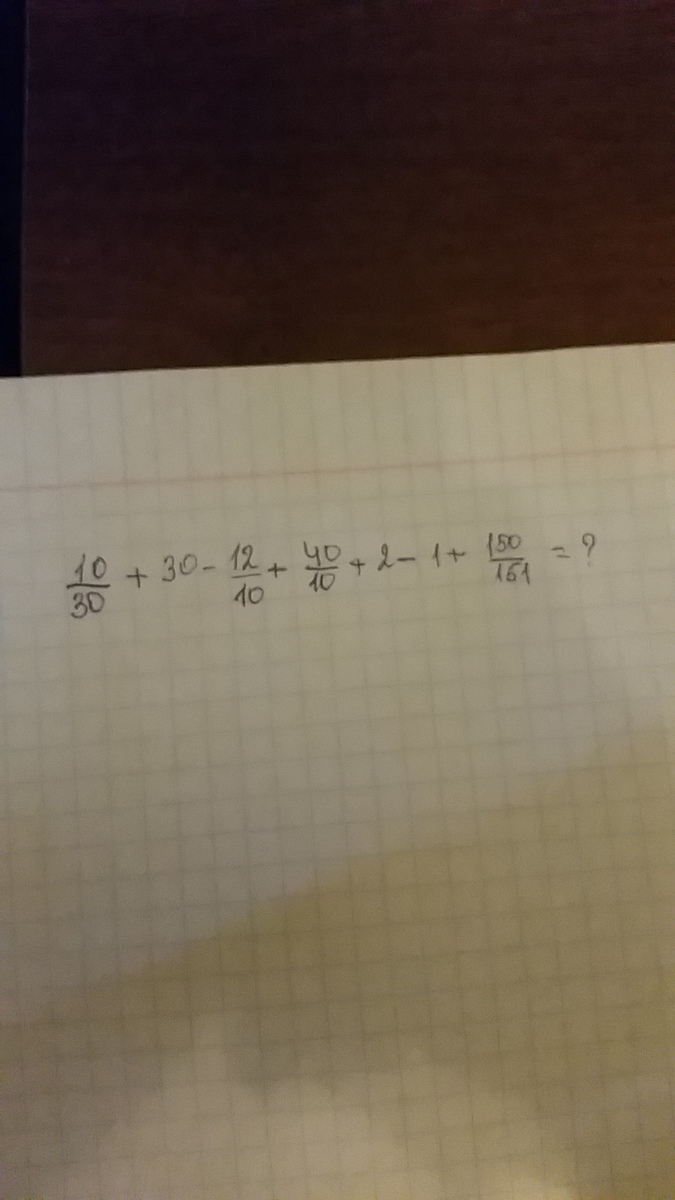 10/30 + 30 - 12/10 + 40/10 + 2 - 1 + 150/151 = ?